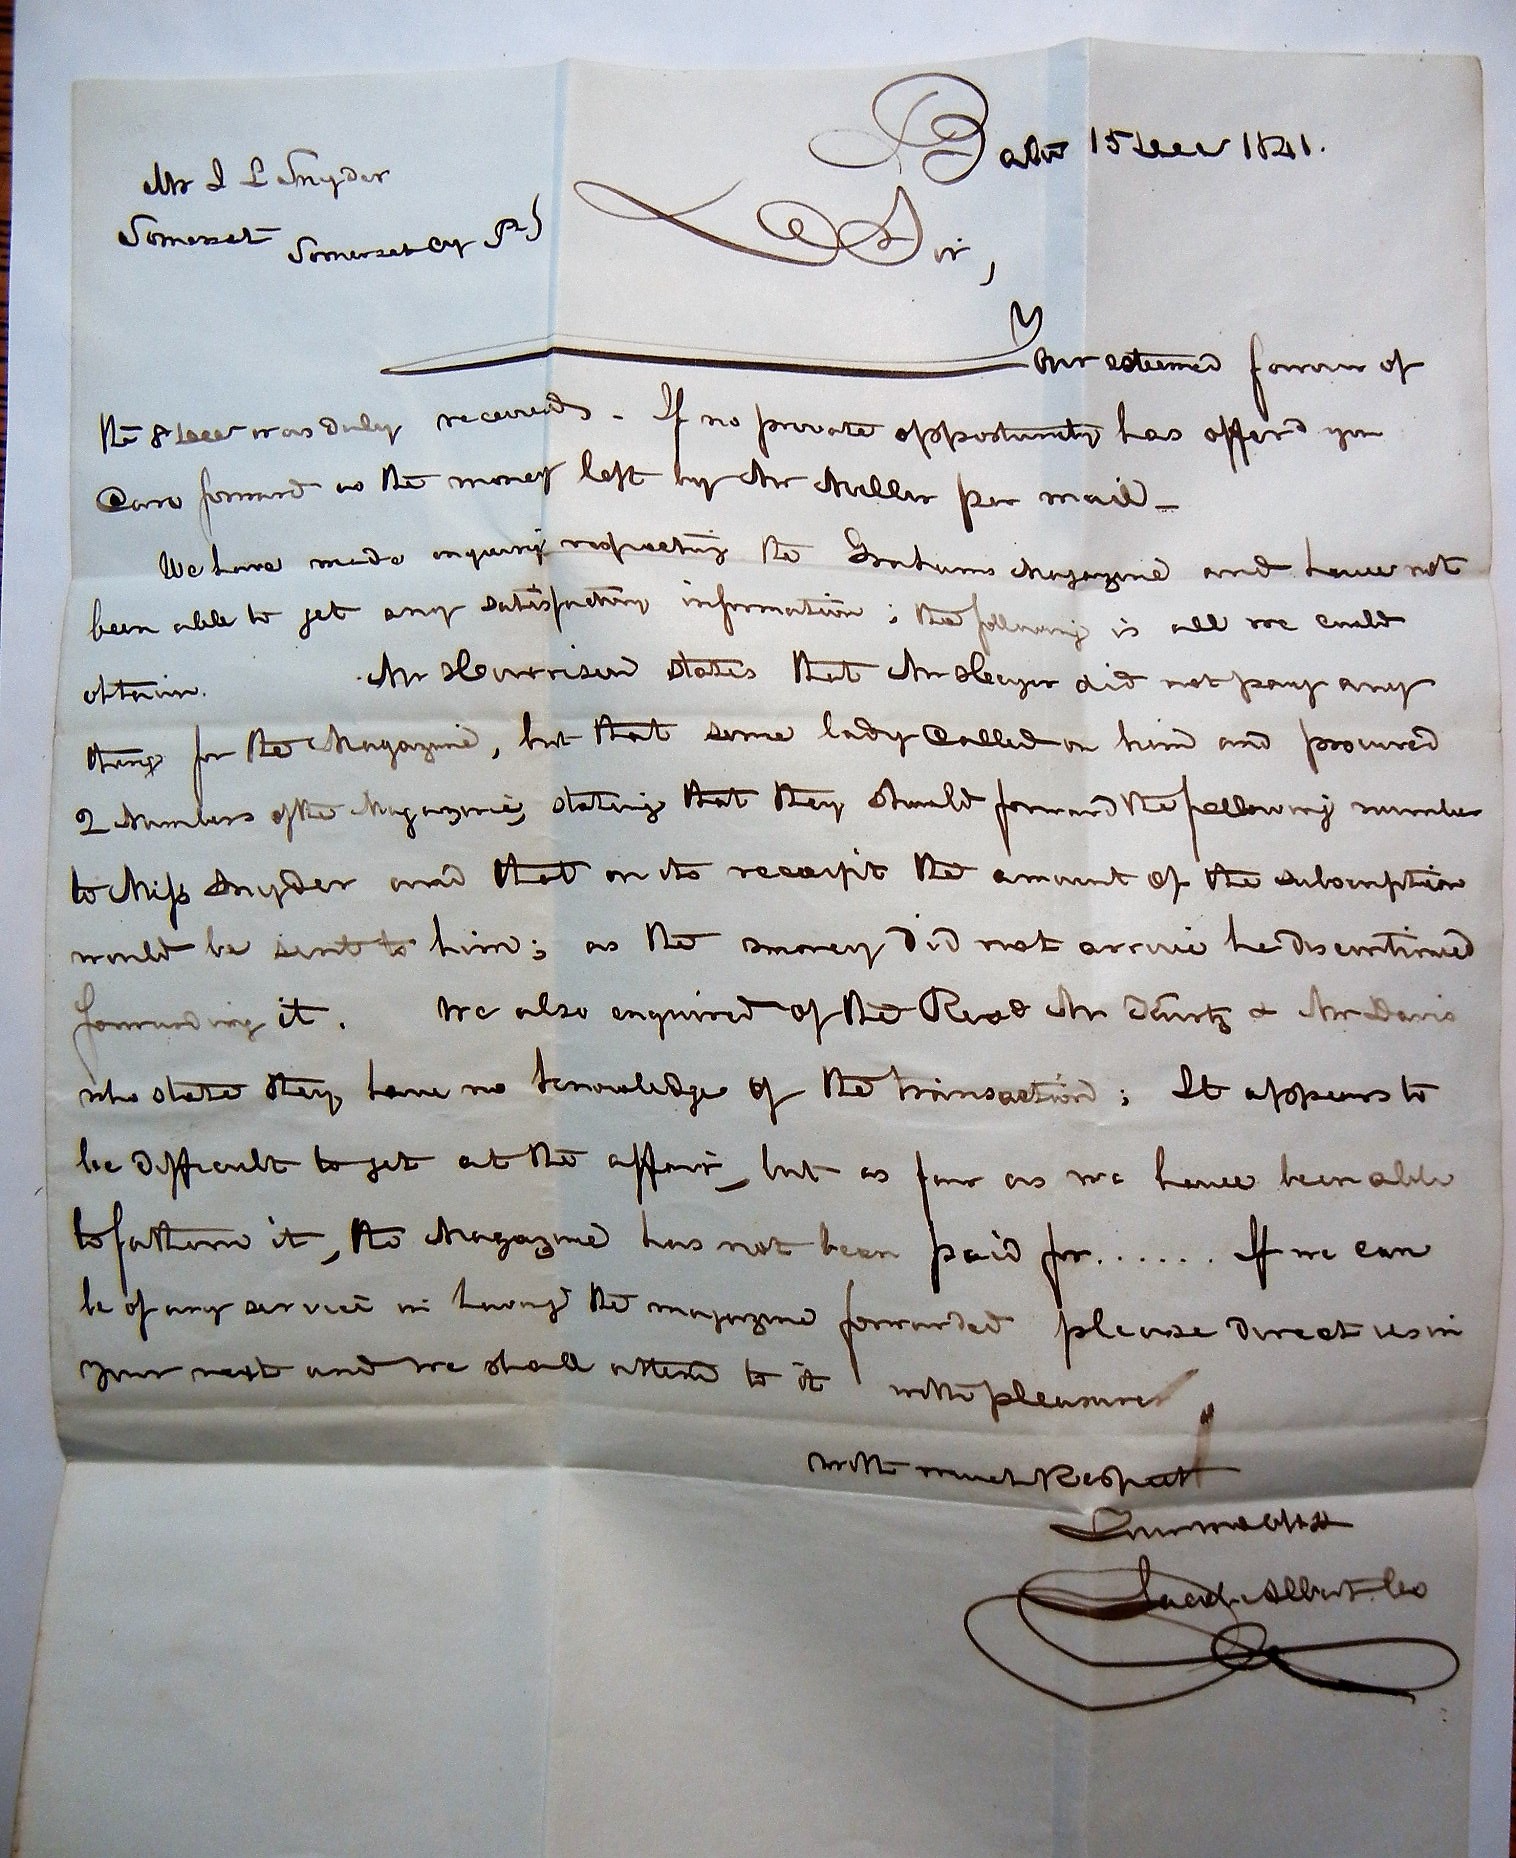 Balto 15 Decr 1841.
Mr J L Snyder
Somerset Somerset Cy Pa
Sir,
Your esteemed favour of
the 8 Decr was duly received. - If no private opportunity has offerd you
can forward us the money left by Mr Miller per mail -
We have made enquiry respecting the Grahams Magazine and have not
been able to get any satisfactory information; the following is all we could
obtain. Mr Harrison states that Mr Heyer did not pay any
thing for the Magazine, but that some lady called on him and procured
2 Numbers of the Magazine, stating that they should forward the following number
to Miss Snyder and that on its receipt the amount of the subscription
would be sent to him; as the money did not arrive he discontinued
forwarding it. We also enquired of the Revd Mr Kurtz & Mr Davis
who state they have no knowledge of the transaction; It appears to
be difficult to get at the affair, but as far as we have been able
to fathom it, the Magazine has not been paid for...... If we can
be of any service in having the magazine forwarded please direct us in
your next and we shall attend to it with pleasure
with much Respect
Jacob Albert & Co